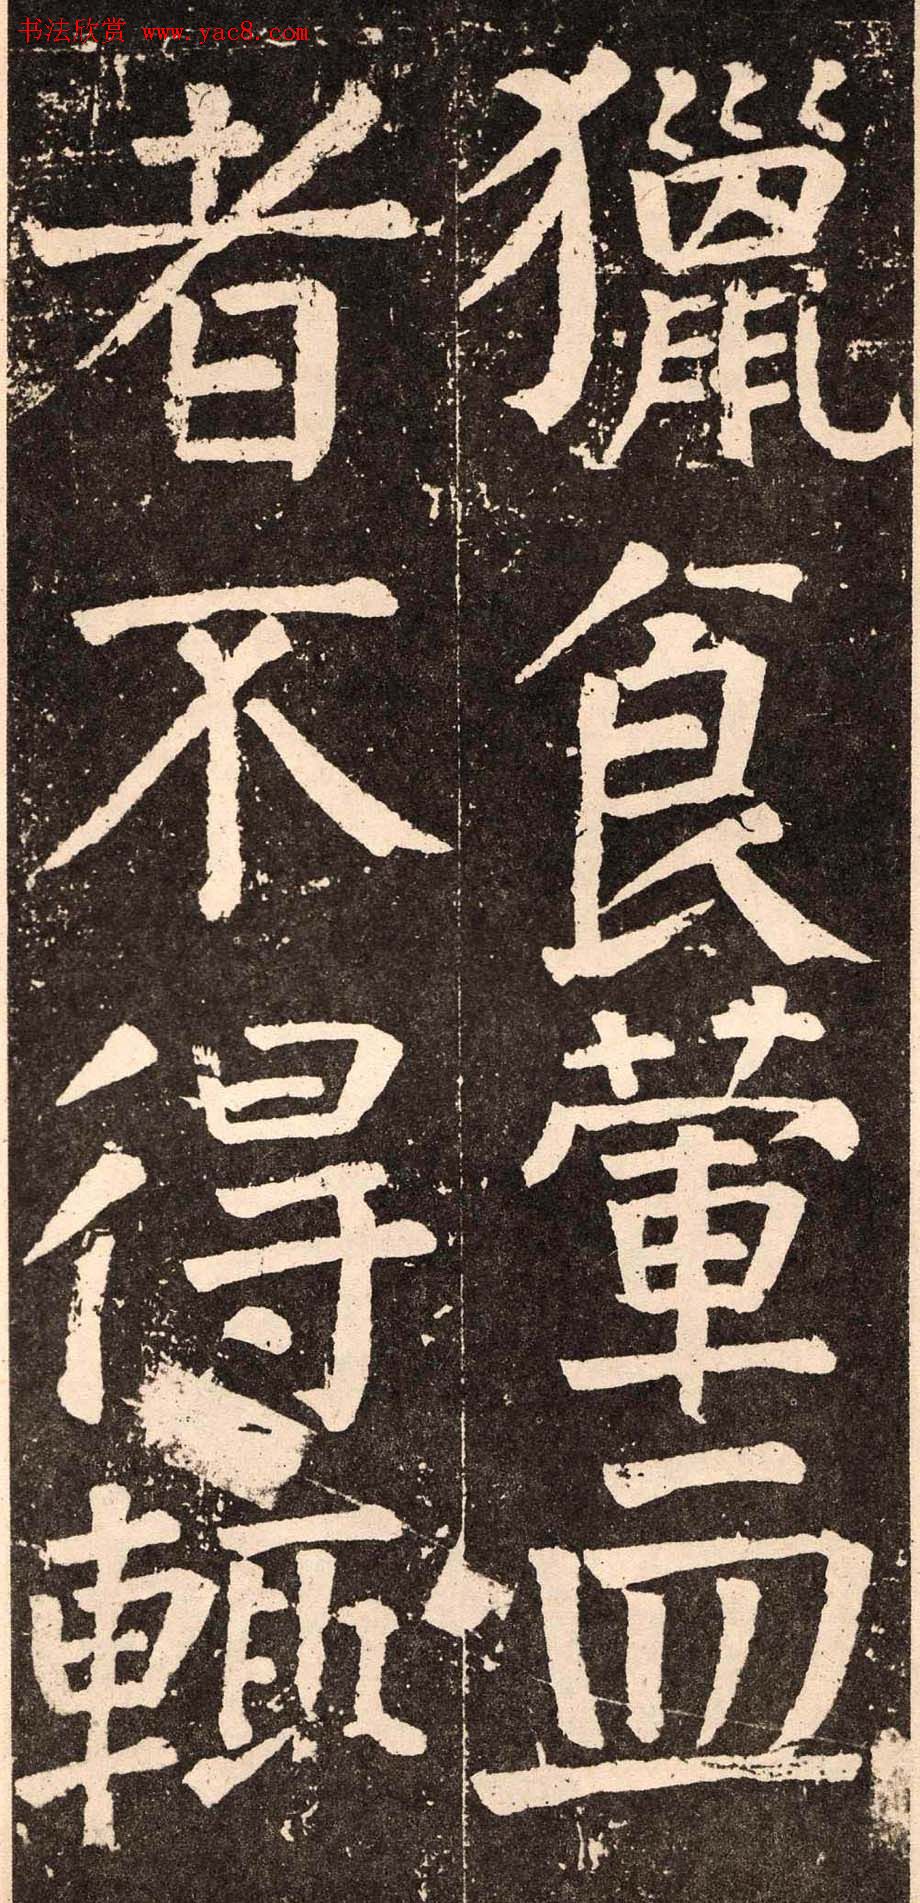 书法欣赏 www.yac8.com
獵食葷血
者不得輙